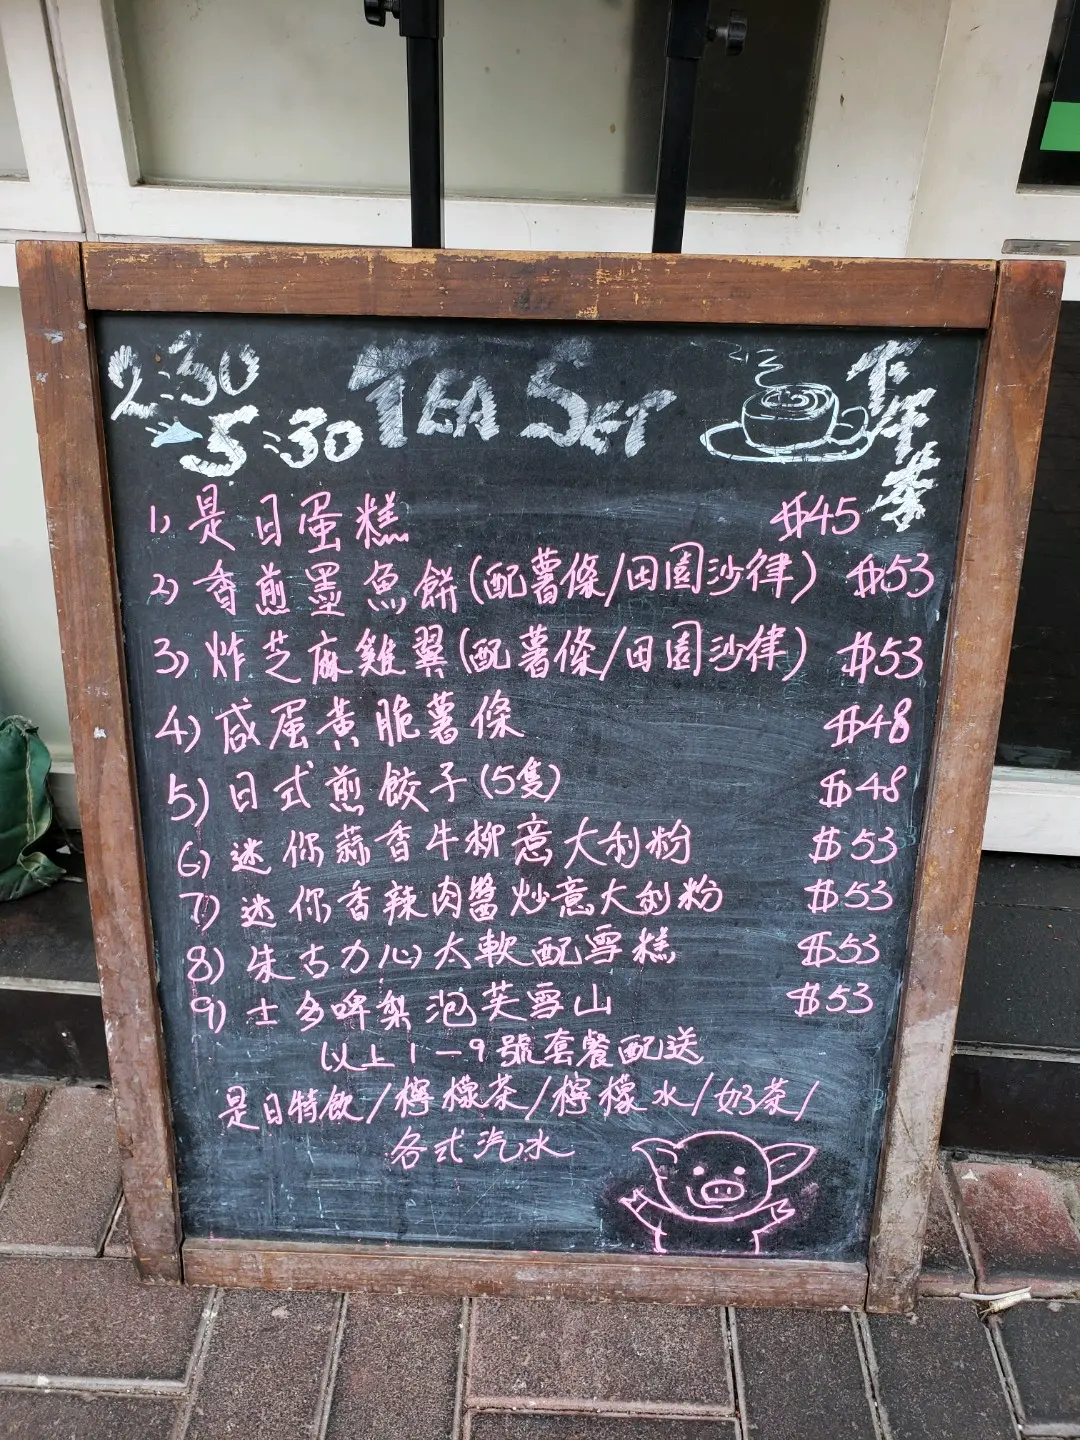 2:30
5:30
TEA SET
下午茶
1) 是日蛋糕 $45
2) 香煎墨魚餅(配薯條/田園沙律) $53
3) 炸芝麻雞翼(配薯條/田園沙律) $53
4) 咸蛋黃脆薯條 $48
5) 日式煎餃子(5隻) $48
6) 迷你蒜香牛柳意大利粉 $53
7) 迷你香辣肉醬炒意大利粉 $53
8) 朱古力心太軟配雪糕 $53
9) 士多啤梨泡芙雪山 $53
以上1-9號套餐配送
是日特飲/檸檬茶/檸檬水/奶茶/
各式汽水